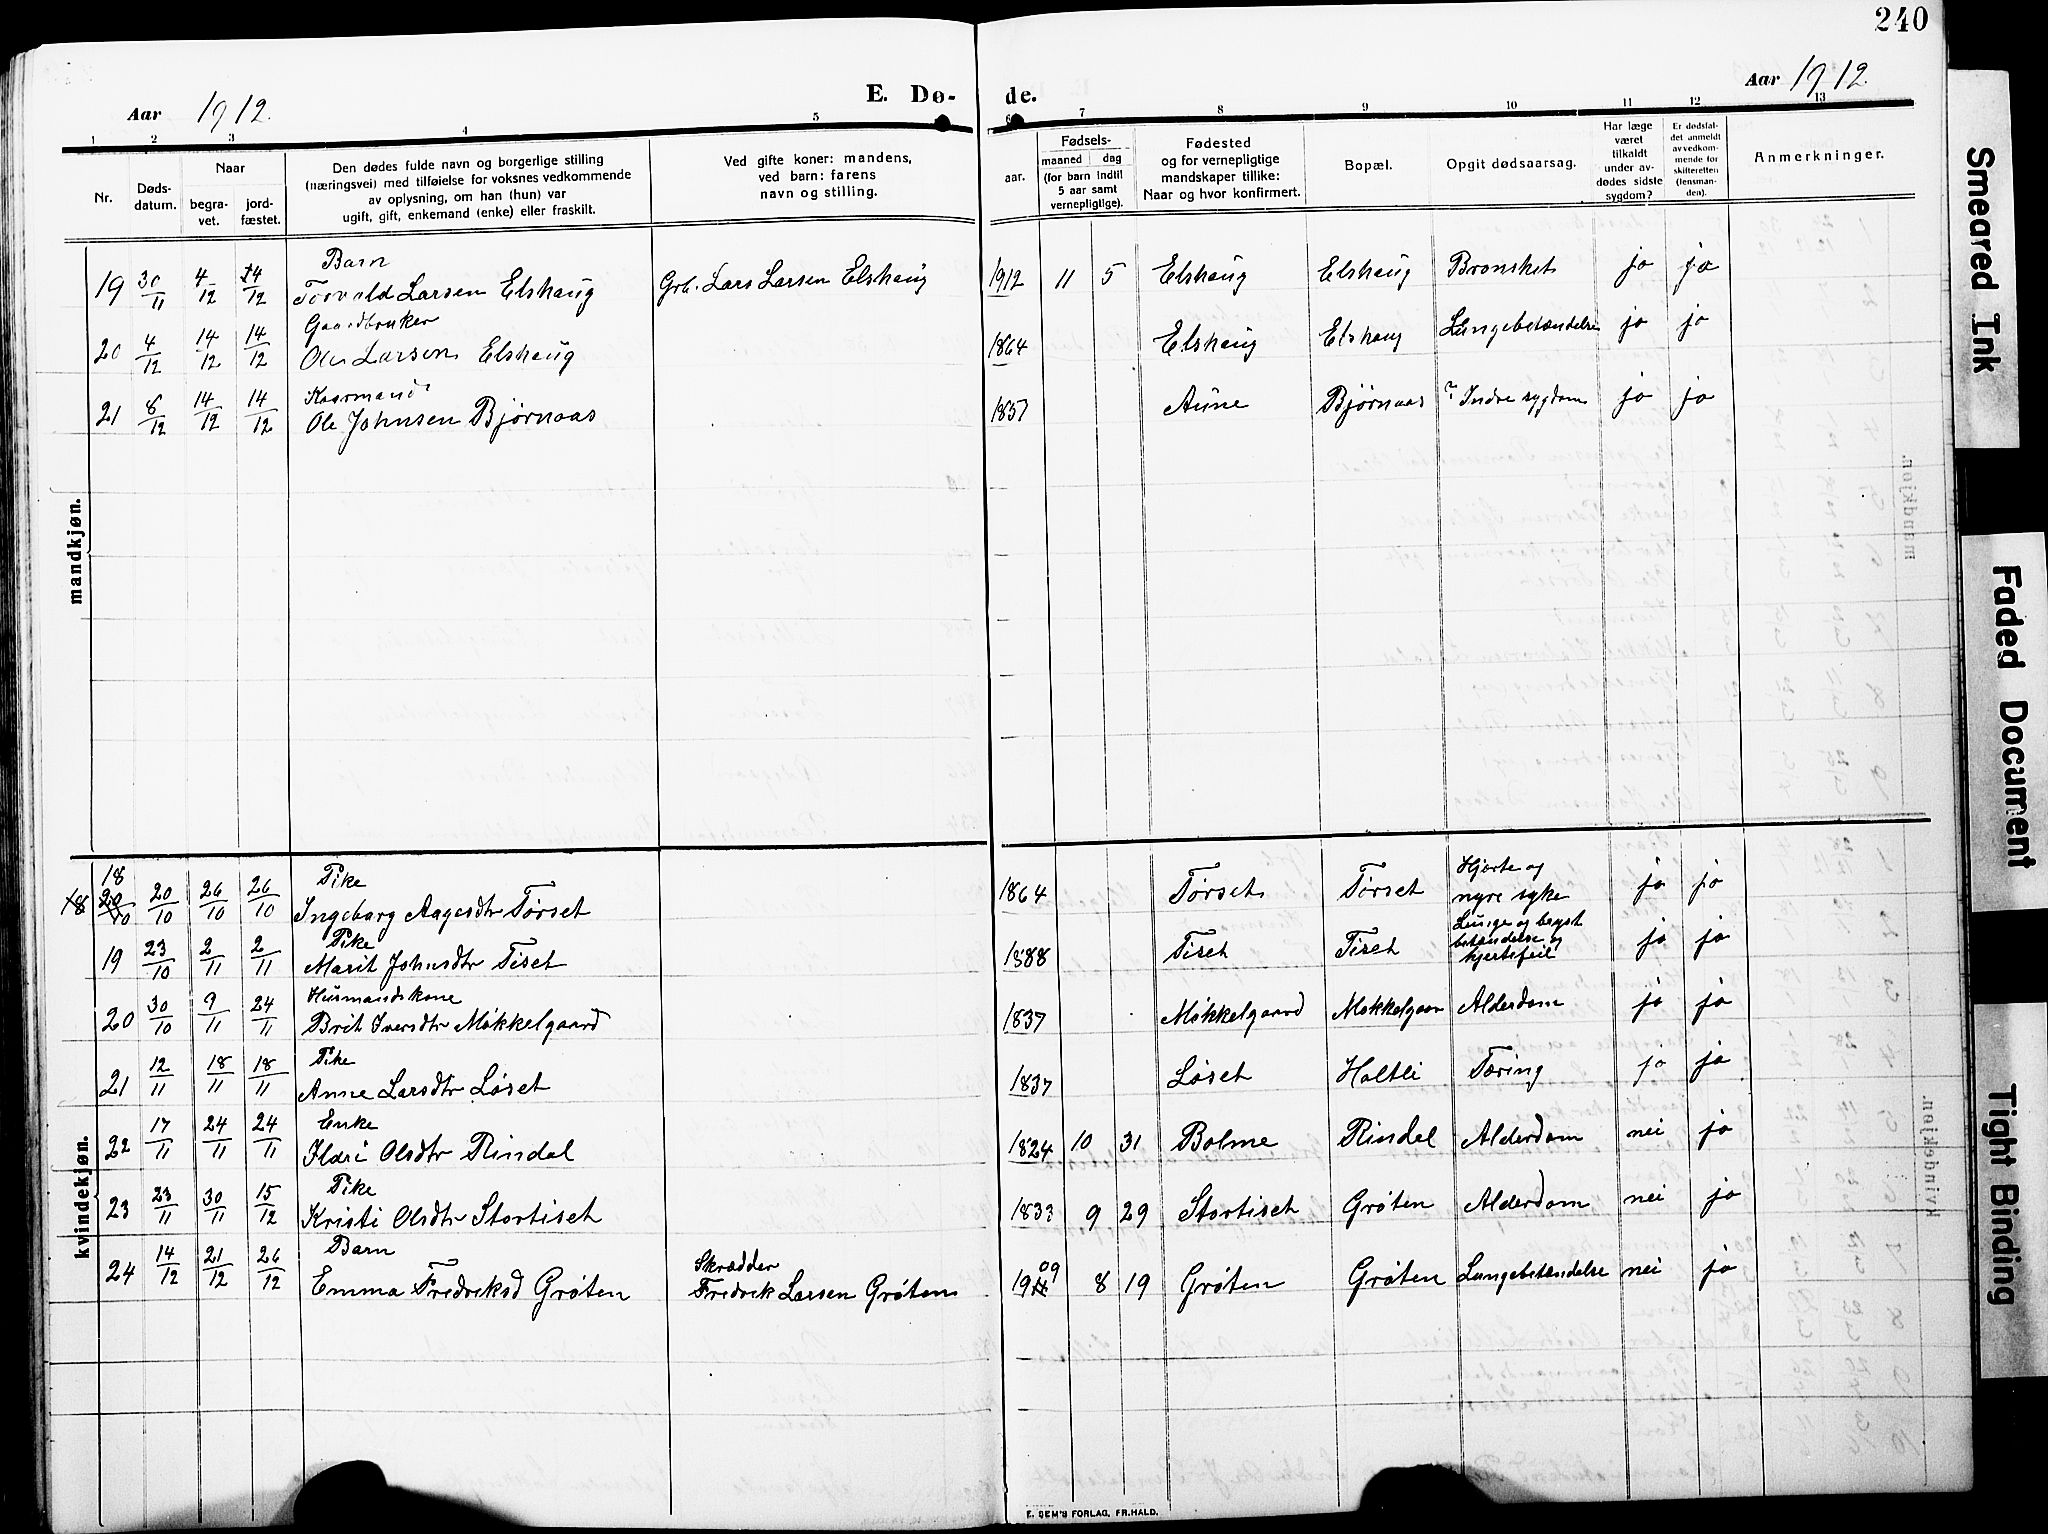 240
Aar 1912.
E. Dø-
de.
Aar 1912.
1 2 3 4 5 6 7 8 9 10 11 12 13
Nr.
Døds-
datum.
Naar
begra-
vet.
jord-
fæstet.
Den dødes fulde navn og borgerlige stilling
(næringsvei) med tilføielse for voksnes vedkommende
av oplysning, om han (hun) var
ugift, gift, enkemand (enke) eller fraskilt.
Ved gifte koner: mandens,
ved barn: farens
navn og stilling.
aar.
Fødsels-
maaned dag
(for barn indtil
5 aar samt
vernepligtige).
Fødested
og for vernepligtige
mandskaper tillike:
Naar og hvor konfirmert.
Bopæl.
Opgit dødsaarsag.
Har læge
været
tilkaldt
under av-
dødes sidste
sygdom?
Er dødsfal-
det anmeldt
av vedkom-
mende for
skifteretten
(lensman-
den).
Anmerkninger.
mandkjøn.
Barn
19 30/11 4/12 14/12 Torvald Larsen Elshaug Grb. Lars Larsen Elshaug 1912 11 5 Elshaug Elshaug Bronsket ja ja
Gaardbruker
20 4/12 14/12 14/12 Ole Larsen Elshaug 1864 Elshaug Elshaug Lungebetændelse ja ja
Kaarmand
21 8/12 14/12 14/12 Ole Johnsen Bjørnaas 1857 Aune Bjørnaas ? Indre sygdom ja ja
kvindekjøn.
18 Pike Hjerte og
18 20/10 20/10 26/10 26/10 Ingeborg Aagesdtr Tørset 1864 Tørset Tørset nyre syke ja ja
Pike Lunge og bryst
19 23/10 2/11 2/11 Marit Johnsdtr Tiset 1888 Tiset Tiset betændelse og ja ja
hjertefeil
Husmandskone
20 30/10 9/11 24/11 Brit Iversdtr Møkkelgaard 1837 Møkkelgaard Møkkelgaar Alderdom ja ja
Pike
21 12/11 18/11 18/11 Anne Larsdtr Løset 1837 Løset Holtli Tæring ja ja
Enke
22 17/11 24/11 24/11 Ildri Olsdtr Rindal 1824 10 31 Bolme Rindal Alderdom nei ja
Pike
23 23/11 30/11 15/12 Kristi Olsdtr Stortiset 1833 9 29 Stortiset Grøten Alderdom nei ja
Barn Skrædder
24 14/12 21/12 26/12 Emma Fredriksd Grøten Fredrik Larsen Grøten 1909 8 19 Grøten Grøten Lungebetændelse nei ja
E. SEM'S FORLAG, FR.HALD.
Smeared Ink
Faded Document
Tight Binding
mandkjøn.
kvindekjøn.